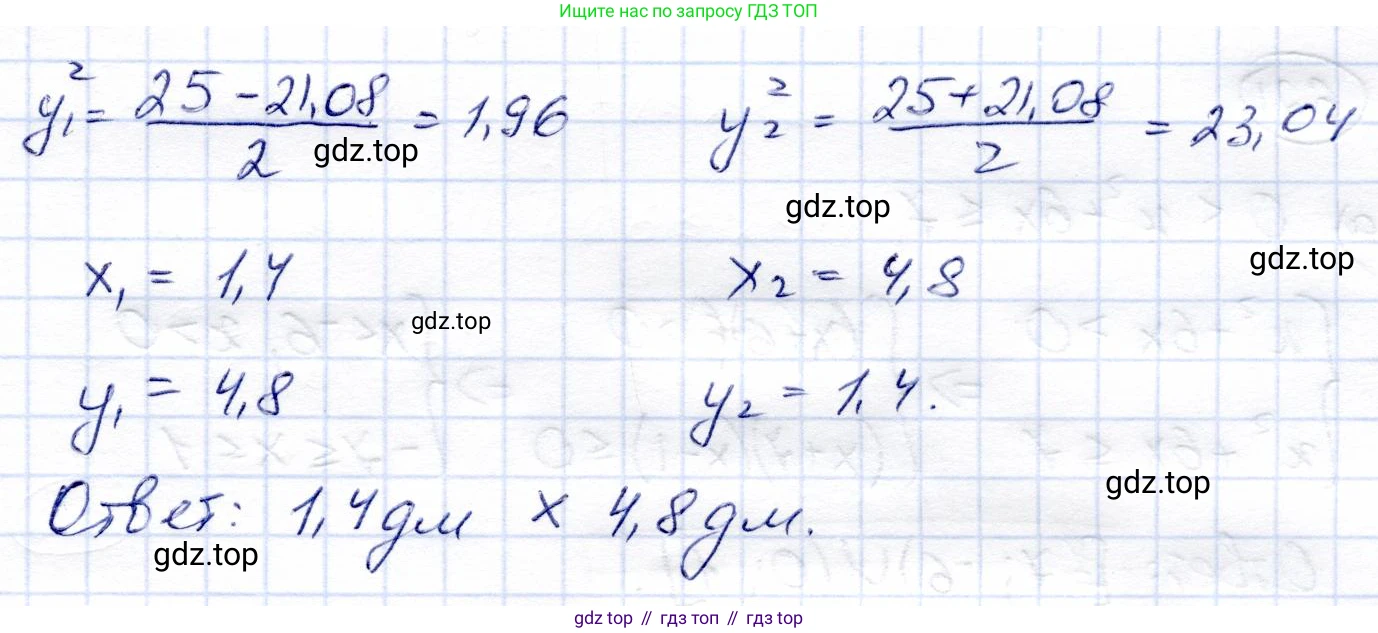 Ищите нас по запросу ГДЗ ТОП
y₁² = (25 - 21,08)/2 = 1,96 y₂² = (25 + 21,08)/2 = 23,04
gdz.top
gdz.top
x₁ = 1,4 x₂ = 4,8
gdz.top
gdz.top
y₁ = 4,8 y₂ = 1,4.
gdz.top
Ответ: 1,4 дм x 4,8 дм.
gdz.top
gdz top // гдз топ // gdz top